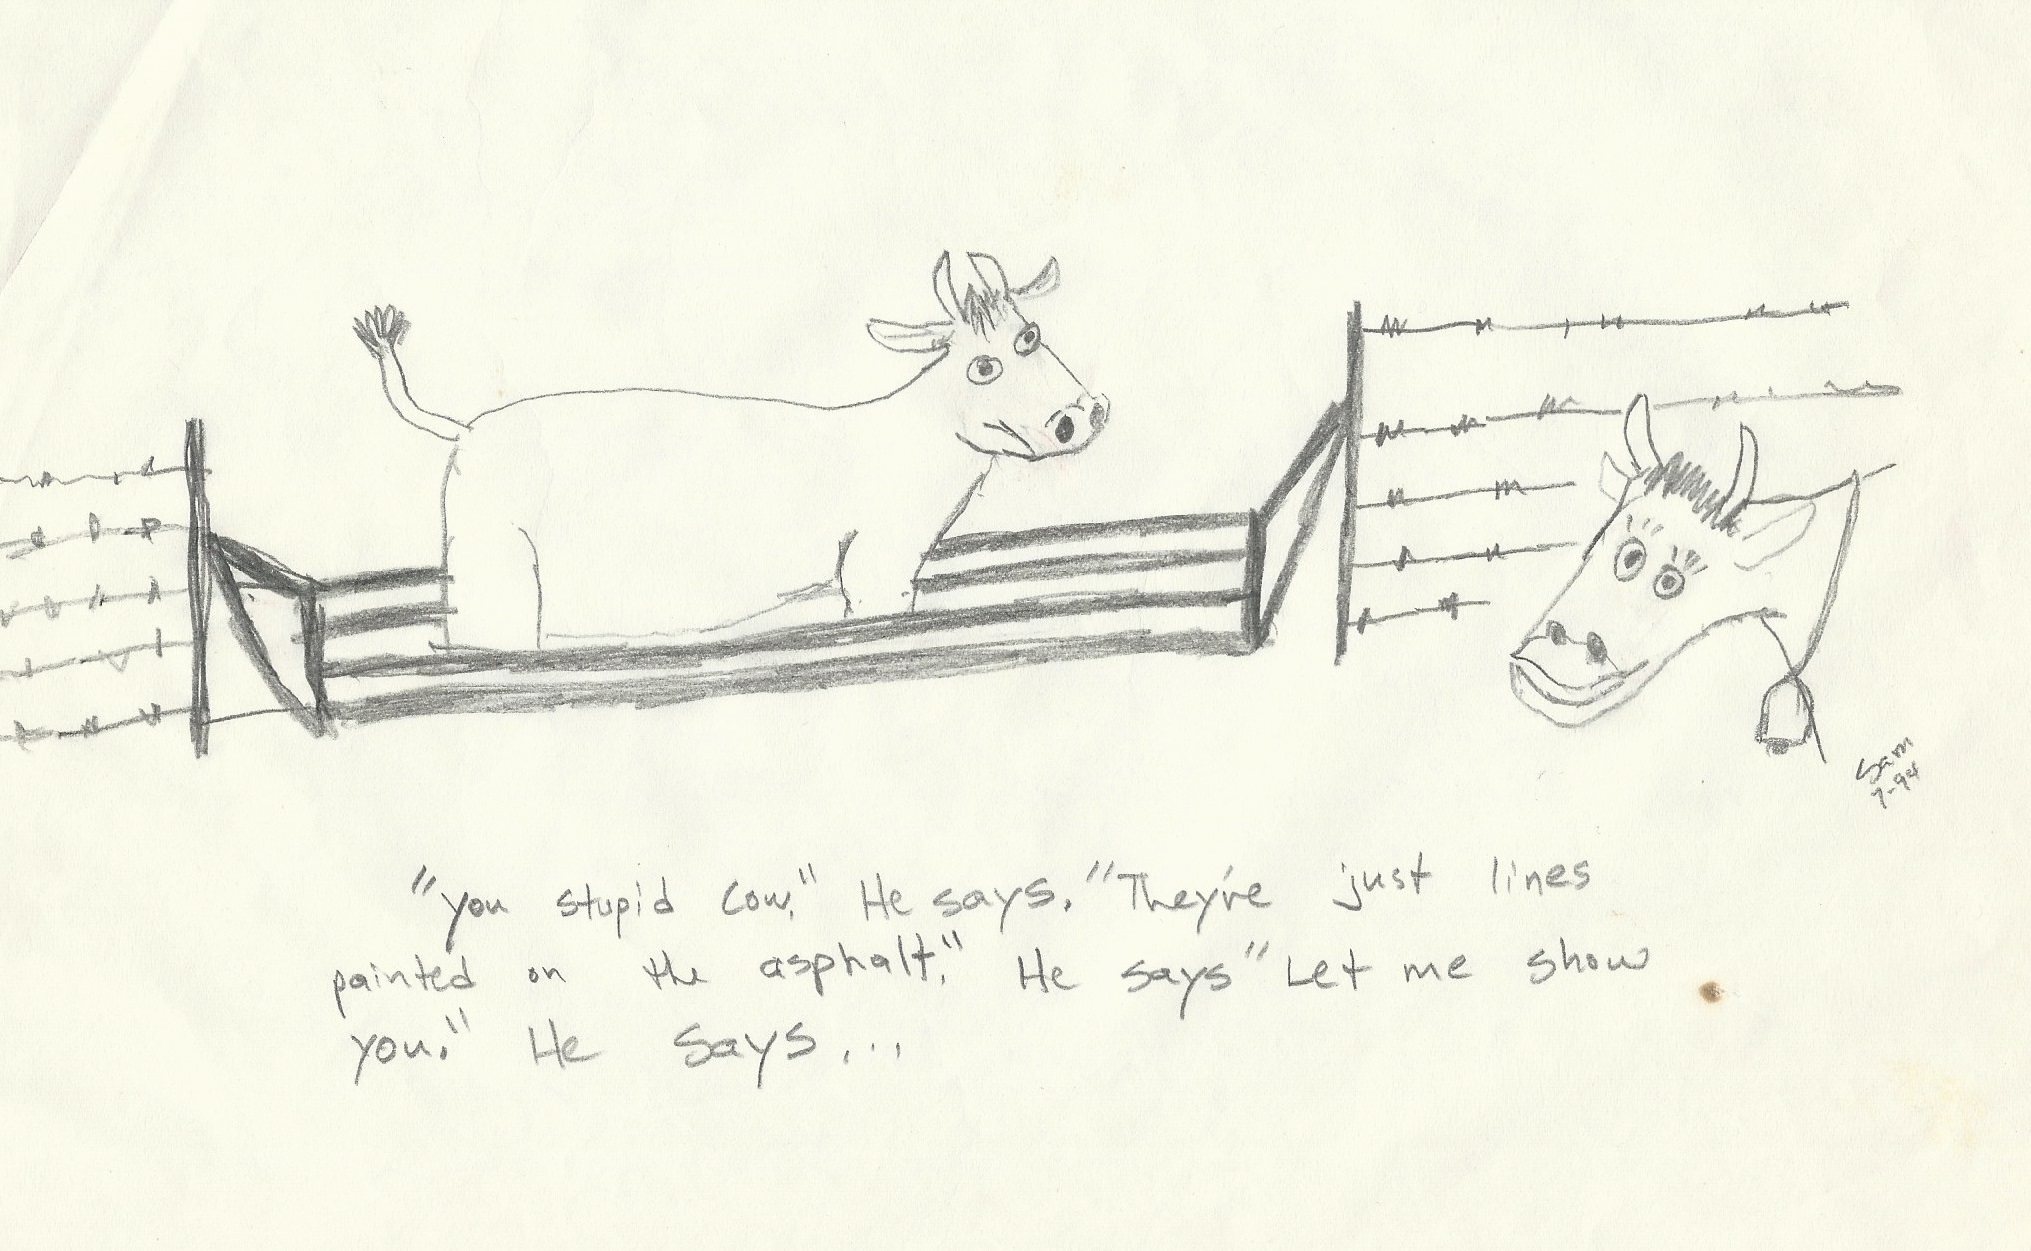 Sam
7-94
"You stupid Cow," He says. "They're just lines
painted on the asphalt," He says "Let me show
you." He says...